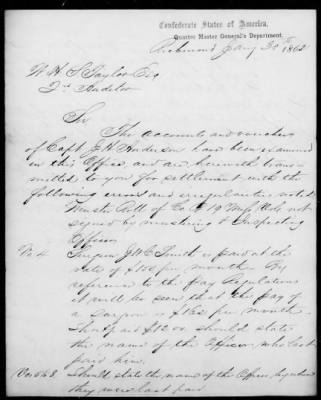 Confederate States of America,
Quarter Master General's Department.
Richmond Jany 30th 1862
W. H. S. Taylor Esq
2d Auditor
Sir
The accounts and vouchers
of Capt J. H. Anderson have been examined
in this Office, and are herewith trans-
mitted to you for settlement with the
following errors and irregularities noted,
Muster Roll of Co 19 Miss Vols not
signed by mustering & Inspecting
Officer
No 4 Surgeon Smith is paid at the
rate of $ per month - By
reference to the Pay Regulations
it will be seen that the pay of
a Surgeon is $162 per month -
should state
the name of the Officer who last
paid him.
Vo 5 & 8 Should state the name of the Officer by whom
they were last paid